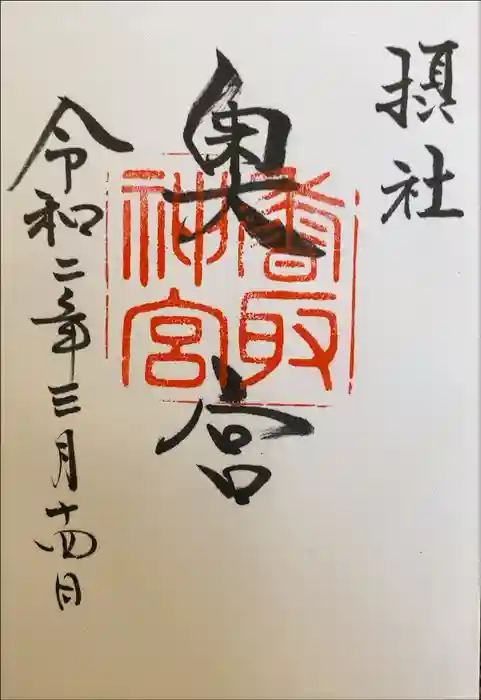 摂社
奥宮
香取
神宮
令和二年三月十四日